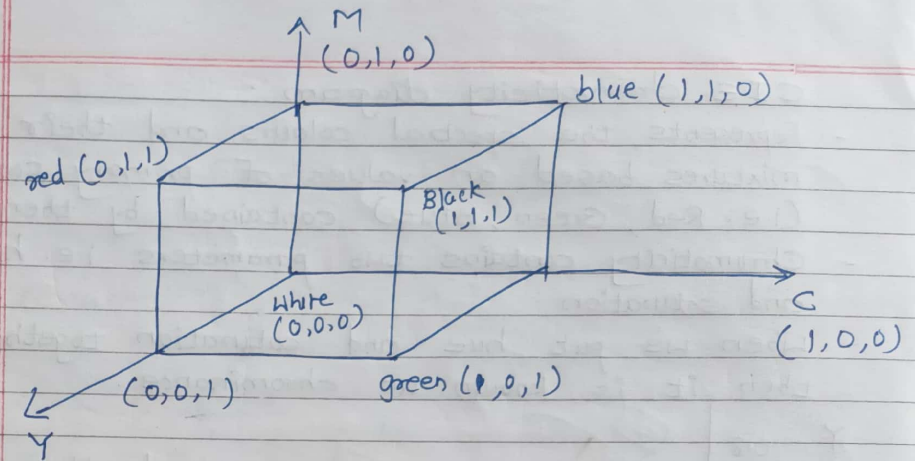 M
(0,1,0)
blue (1,1,0)
red (0,1,1)
Black
(1,1,1)
White
(0,0,0)
C
(1,0,0)
(0,0,1)
green (1,0,1)
Y